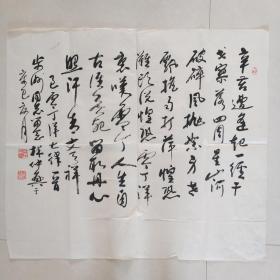 辛苦遭逢起一经干
戈寥落四周星山河
破碎风抛絮身世
飘摇雨打萍惶恐
滩头说惶恐零丁洋
里叹零丁人生自
古谁无死留取丹心
照汗青文天祥
过零丁洋七律一首
同志
辛巳月